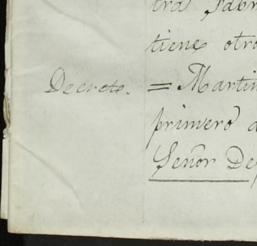 tra Sabr
tiene otro
Decreto. = Martin
primero d
Señor De